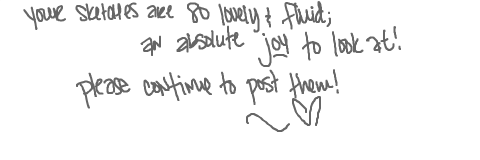 your sketches are so lovely & fluid;
an absolute joy to look at!
please continue to post them!